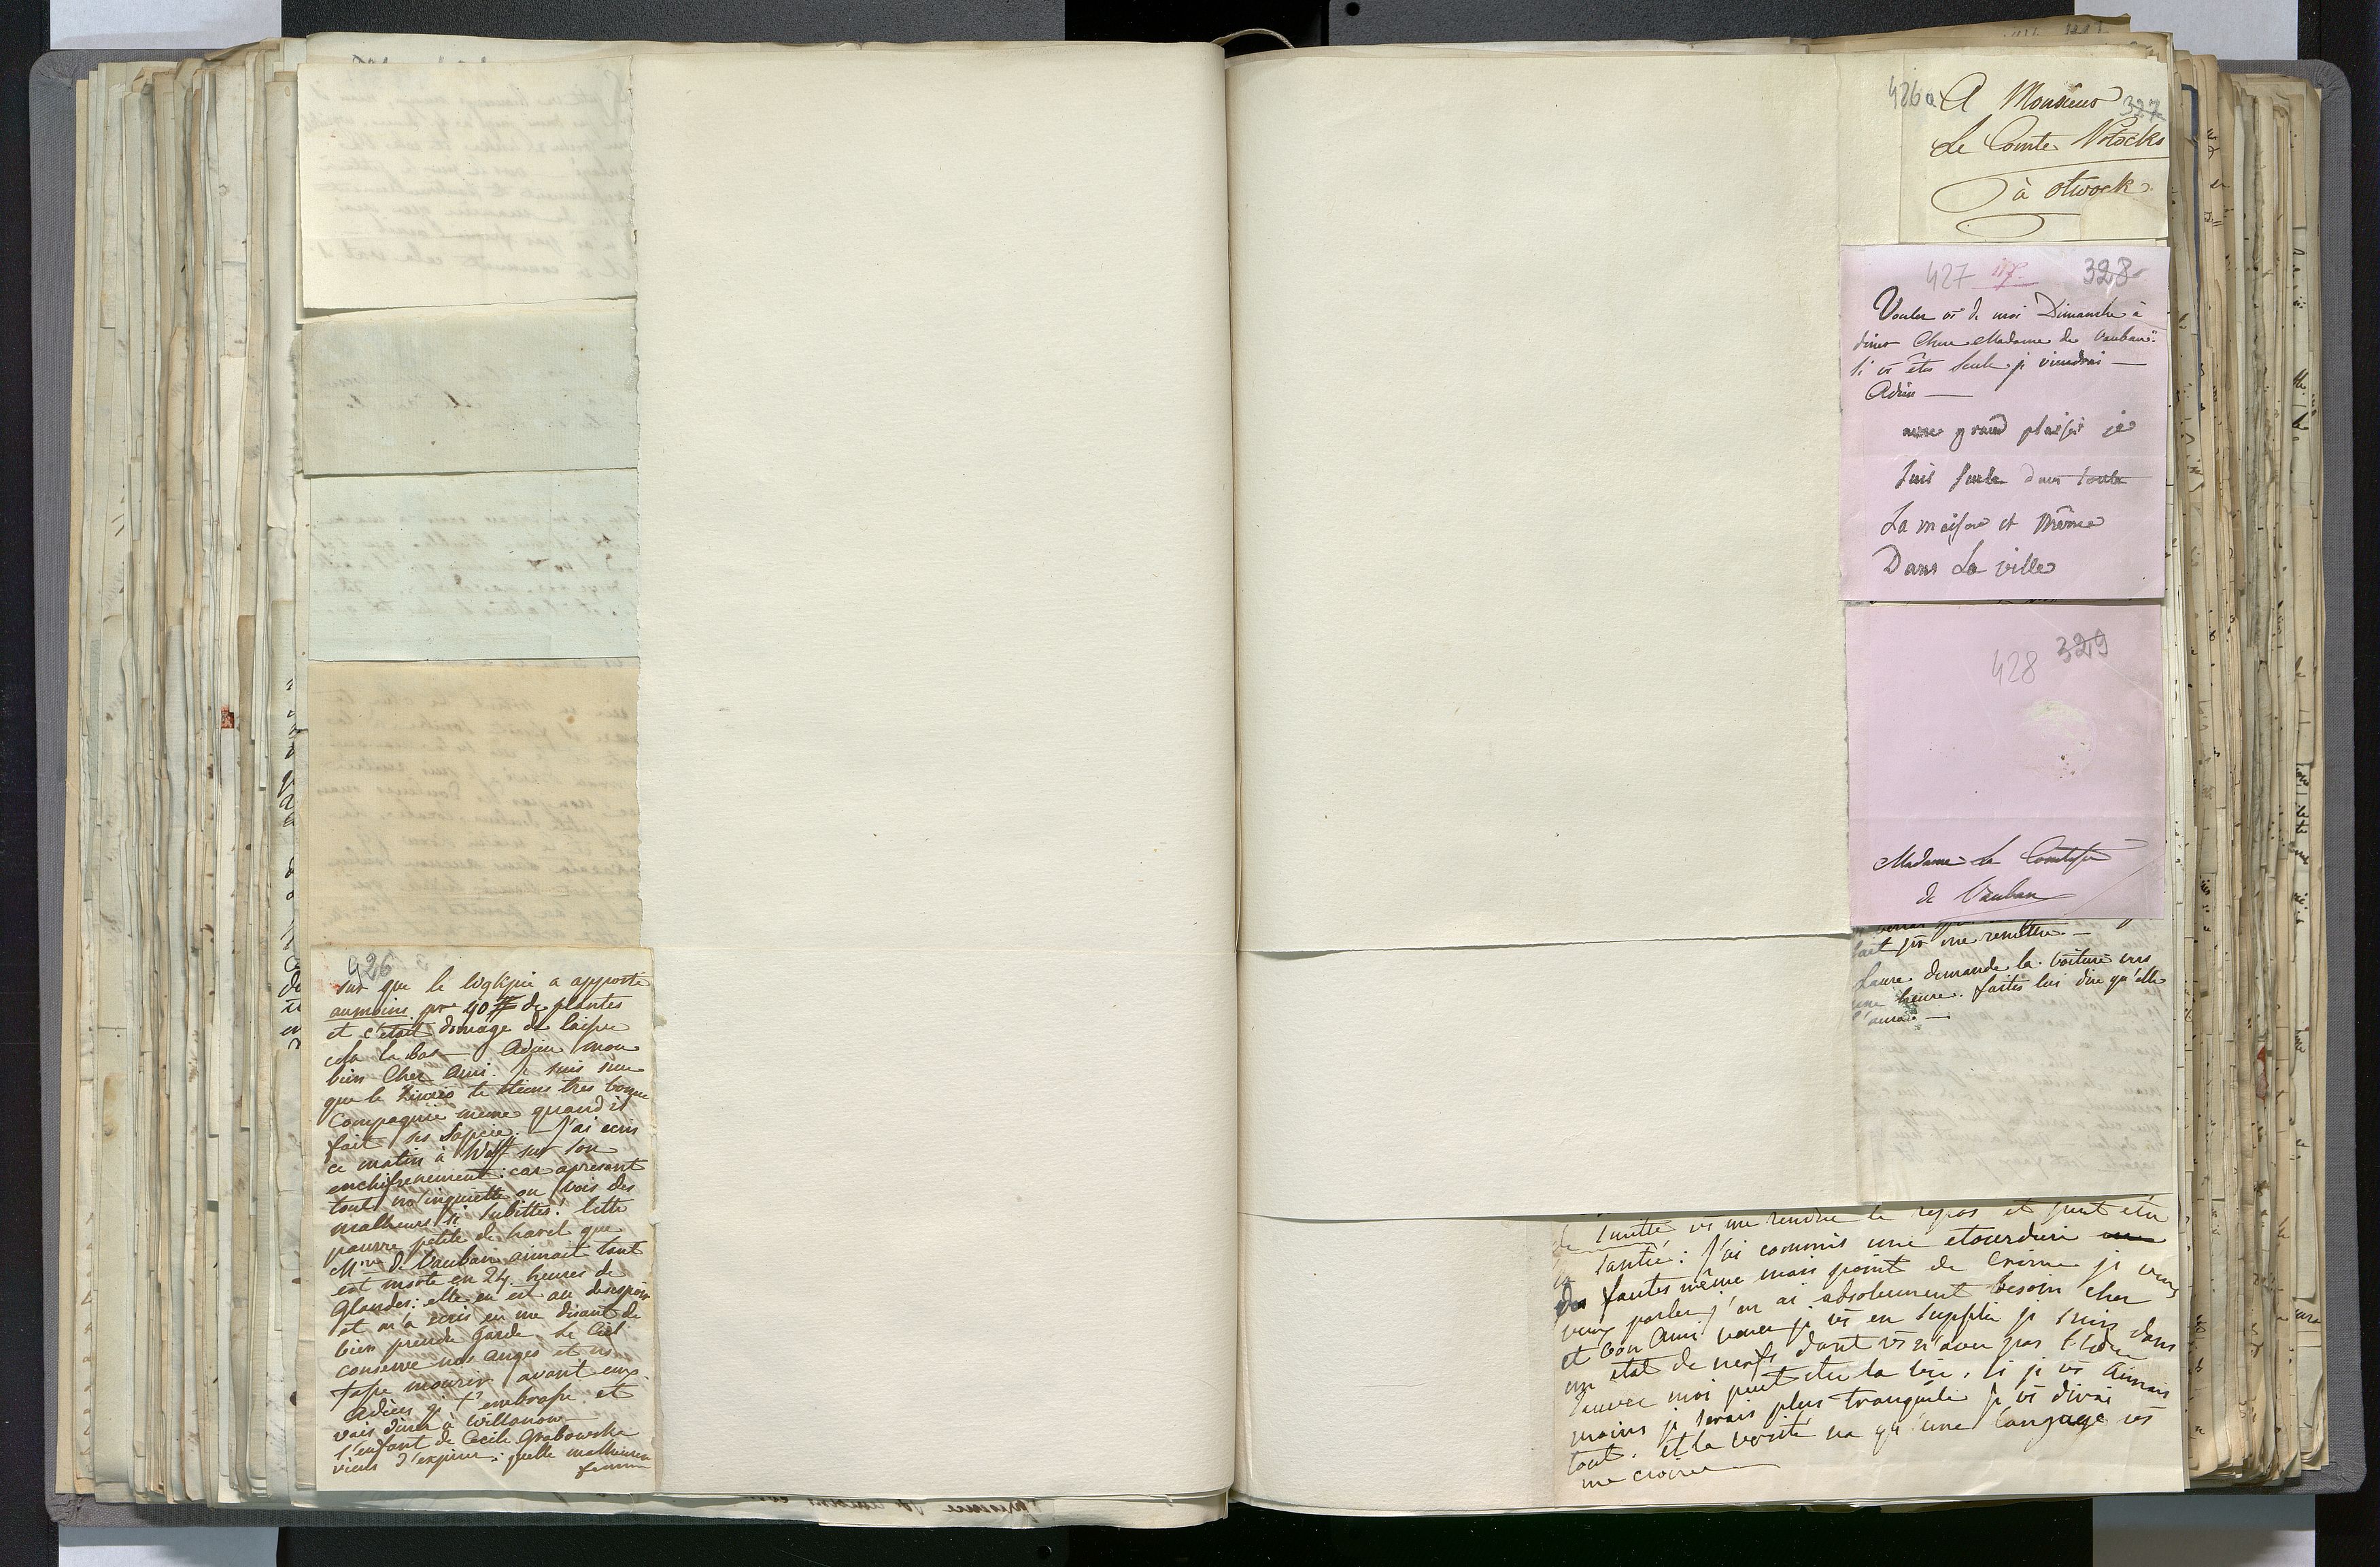 426
sur que le Wózkjia a apporté
aumoins pr 40 # de plantes
et c'était domage de laisser
cela la bas — Adieu mon
bien Cher Ami. Je suis sure
que le te tiens tres bonne
Compagnie meme quand il
fait ses Sapcie. — J'ai ecris
ce matin à Wolff sur son
enchifrenement: car apresent
tout m'inquiette on vois des
malheurs si subittes! cette
pauvre petite de havel que
Mme de Vauban aimait tant
est morte en 24 heures de
Glandes: elle en est au desespoir
et m'a ecris en me disant de
bien prendre garde. Le Ciel
conserve nos anges et ns
fasse mourir avant eux.
Adieu je t'embrasse et
vais diner à Willanow —
l'enfant de Cecile Grabowska
viens d'expirer: quelle malheureuse
femme
426a
A Monsieur
327
Le Comte Potocki
à Otwock
427
117
328
Voulez vs de moi Dimanche à
diner Chere Madame de Vauban:
si vs êtes seule je viendrai —
Adieu —
avec grand plaisir je
suis seule dans toute
La maison et même
Dans La ville
428
329
Madame La Comtesse
de Vauban
fait pr me remettre. —
Laure demande la voiture vers
une heure. faites lui dire qu'elle
l'aura. —
de Suitte vs me rendre le repos et peut etre
la santé: J'ai commis une etourderie
des fautes même mais point de Crime je veux
vous parler j'en ai absolument besoin cher
et bon Ami venez je vs en supplie je suis dans
un etat de nerfs dont vs n'avez pas l'idée
sauvez moi peut etre la vie. si je vs aimais
moins je serais plus tranquile je vs dirai
tout. et la verité na qu'une langage vs
me croirez —